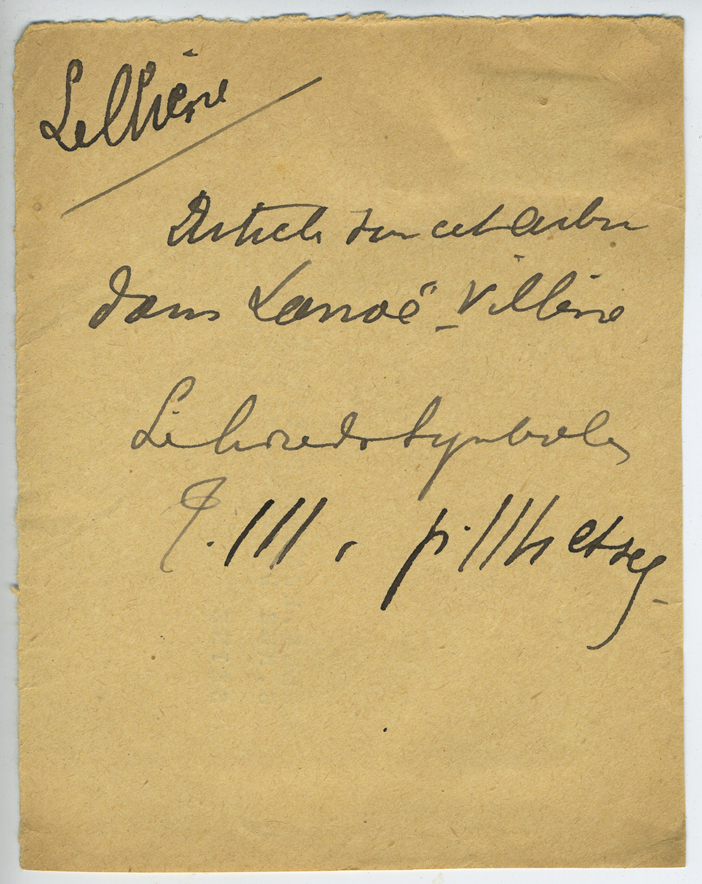 Le Chêne
Article sur cet arbre
dans Lanoë-Villène
Le livre des Symboles
T. III, p. 114 et seq.